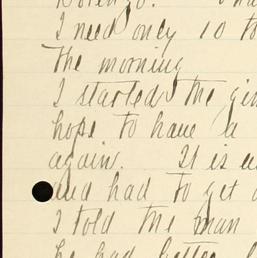 I need only 10 to
the morning
I started the gin
hope to have a
again. It is a
and had to get a
I told the man
he had better